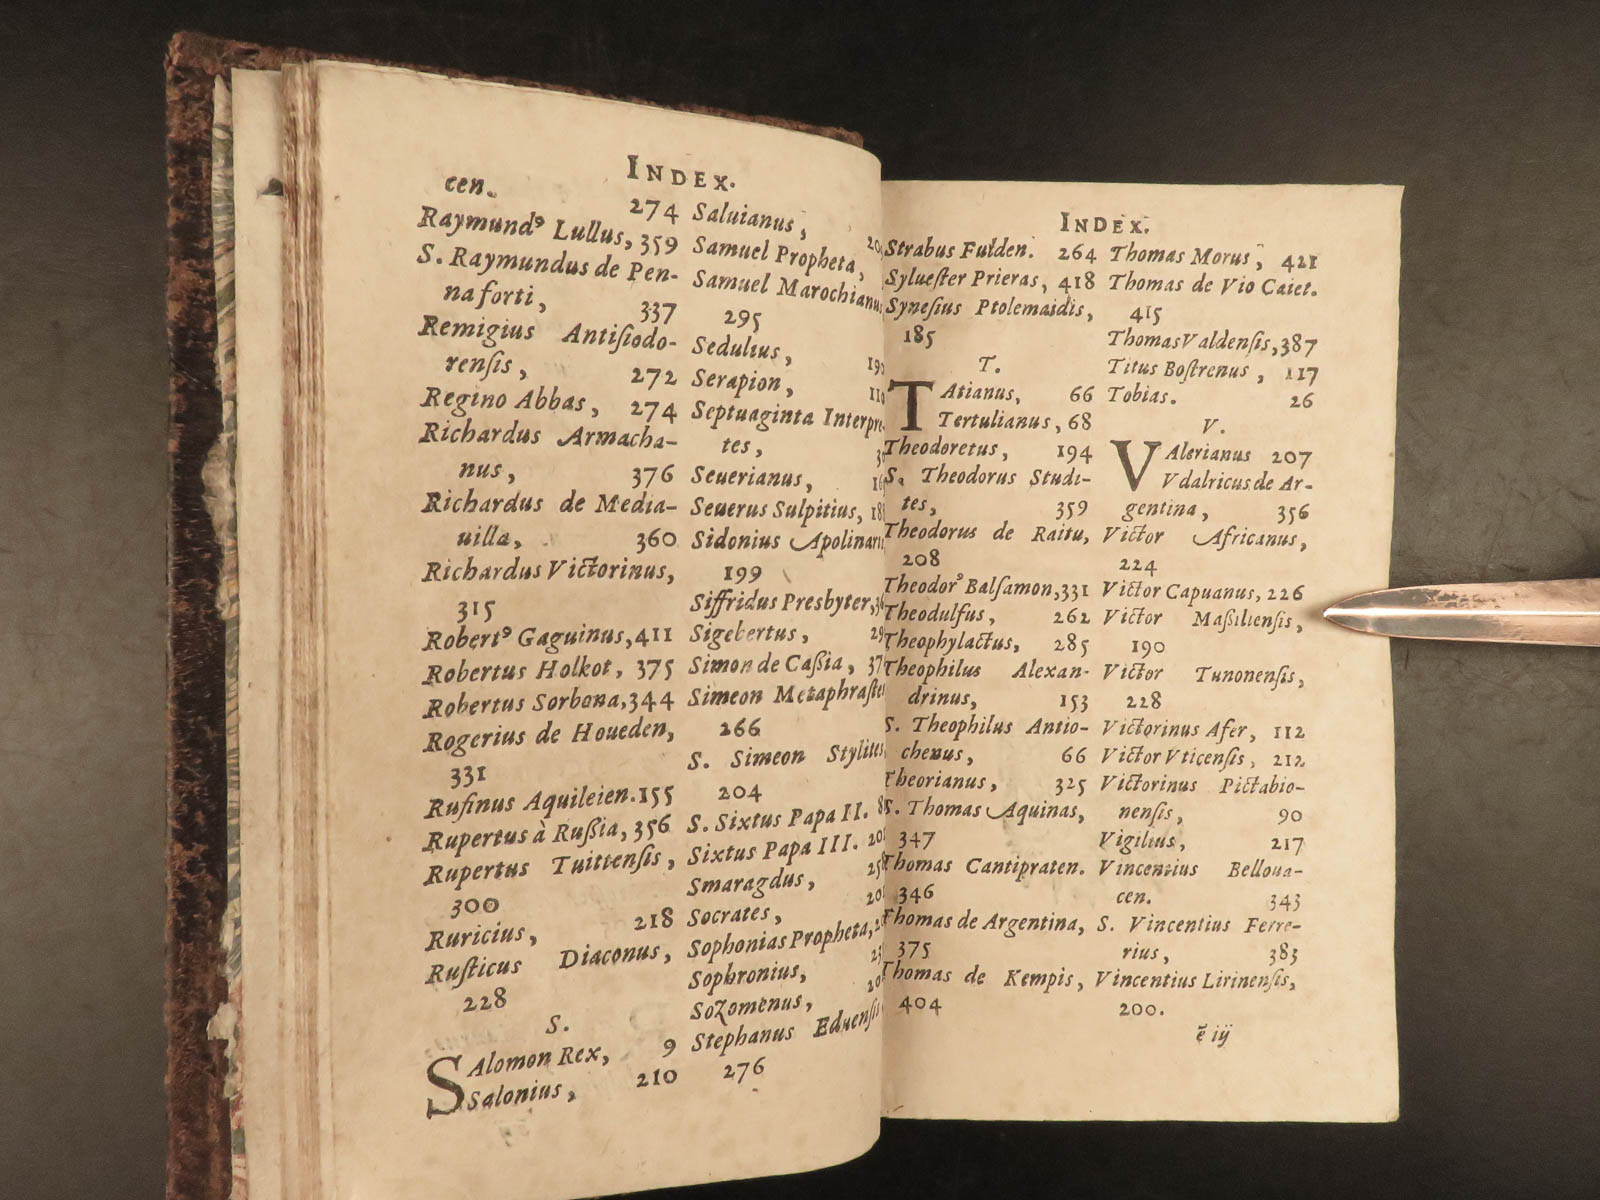 INDEX.
cen. 274
Raymundꝰ Lullus, 359
S. Raymundus de Pen-
naforti, 337
Remigius Antiſiodo-
renſis, 272
Regino Abbas, 274
Richardus Armacha-
nus, 376
Richardus de Media-
uilla, 360
Richardus Victorinus,
315
Robertꝰ Gaguinus, 411
Robertus Holkot, 375
Robertus Sorbona, 344
Rogerius de Houeden,
331
Rufinus Aquileien. 155
Rupertus à Rußia, 356
Rupertus Tuitienſis,
300
Ruricius, 218
Ruſticus Diaconus,
228
S.
SAlomon Rex, 9
Salonius, 210
Saluianus,
Samuel Propheta,
Samuel Marochianus
295
Sedulius,
Serapion,
Septuaginta Interpre-
tes,
Seuerianus,
Seuerus Sulpitius,
Sidonius Apolinaris
199
Siffridus Presbyter,
Sigebertus,
Simon de Caßia,
Simeon Metaphraſtes
266
S. Simeon Stylites
204
S. Sixtus Papa II.
Sixtus Papa III.
Smaragdus,
Socrates,
Sophonias Propheta,
Sophronius,
Sozomenus,
Stephanus Eduenſis
276
INDEX.
Strabus Fulden. 264
Sylueſter Prieras, 418
Syneſius Ptolemaidis,
185
T.
TAtianus, 66
Tertulianus, 68
Theodoretus, 194
S. Theodorus Studi-
tes, 359
Theodorus de Raitu,
208
Theodorꝰ Balſamon, 331
Theodulfus, 262
Theophylactus, 285
Theophilus Alexan-
drinus, 153
S. Theophilus Antio-
chenus, 66
Theorianus, 325
S. Thomas Aquinas,
347
Thomas Cantipraten.
346
Thomas de Argentina,
375
Thomas de Kempis,
404
Thomas Morus, 421
Thomas de Vio Caiet.
415
Thomas Valdenſis, 387
Titus Boſtrenus, 117
Tobias. 26
V.
VAlerianus 207
Vdalricus de Ar-
gentina, 356
Victor Africanus,
224
Victor Capuanus, 226
Victor Maßilienſis,
190
Victor Tunonenſis,
228
Victorinus Afer, 112
Victor Vticenſis, 212
Victorinus Pictabio-
nenſis, 90
Vigilius, 217
Vincentius Belloua-
cen. 343
S. Vincentius Ferre-
rius, 383
Vincentius Lirinenſis,
200.
ẽ iij